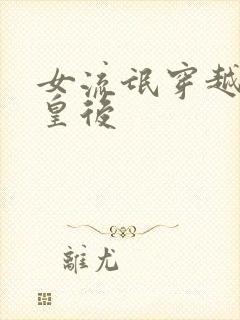 女流氓穿越
皇後
離尤